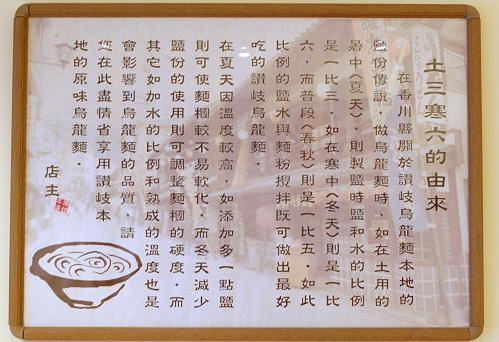 土三寒六的由來
在香川縣關於讚岐烏龍麵本地的
鹽份傳說．做烏龍麵時．如在土用的
暑中(夏天)．則製鹽時鹽和水的比例
是一比三．如在寒中(冬天)則是一比
六．而普段(春秋)則是一比五．如此
比例的鹽水與麵粉攪拌既可做出最好
吃的讚岐烏龍麵．
在夏天因溫度較高．如添加多一點鹽
則可使麵糰較不易軟化．而冬天減少
鹽份的使用則可調整麵糰的硬度．而
其它如加水的比例和熟成的溫度也是
會影響到烏龍麵的品質．請
您在此盡情省享用讚岐本
地的原味烏龍麵．
店主